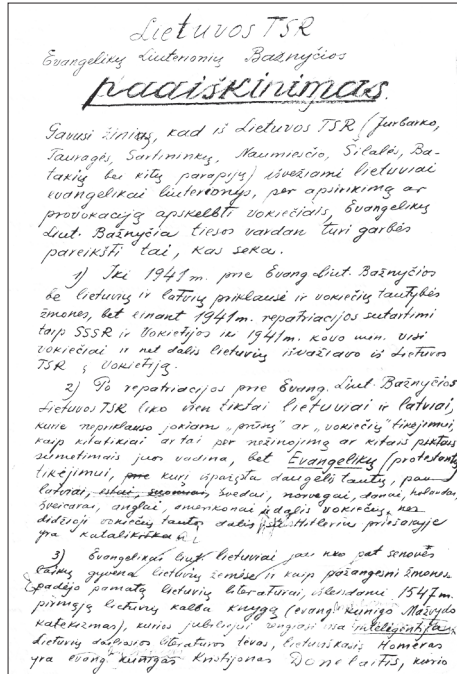 Lietuvos TSR
Evangelikų Liuteronių Bažnyčios
paaiškinimas.
Gavusi žinias, kad iš Lietuvos TSR (Jurbarko,
Tauragės, Sartininkų, Naumiesčio, Šilalės, Ba-
takių bei kitų parapijų) išvežiami lietuviai
evangelikai liuteronys, per apsirikimą ar
provokaciją apskelbti vokiečiais, Evangelikų
Liut. Bažnyčia tiesos vardan turi garbės
pareikšti tai, kas seka.
1) Iki 1941 m. prie Evang. Liut. Bažnyčios
be lietuvių ir latvių priklausė ir vokiečių tautybės
žmonės, bet einant 1941 m. repatriacijos sutartimi
tarp SSSR ir Vokietijos iki 1941 m. kovo mėn. visi
vokiečiai ir net dalis lietuvių išvažiavo iš Lietuvos
TSR į Vokietiją.
2) Po repatriacijos prie Evang. Liut. Bažnyčios
Lietuvos TSR liko vien tiktai lietuviai ir latviai,
kurie nepriklauso jokiam „prūsų" ar „vokiečių" tikėjimui,
kaip kitatikiai ar tai per nežinojimą ar kitais piktais
sumetimais juos vadina, bet Evangelikų (protestantų
tikėjimui, kurį išpažįsta daugelis tautų,
latviai, estai, suomiai, švedai, norvegai, danai, holandai,
šveicarai, anglai, amerikonai ir dalis vokiečių, nes
didžioji vokiečių tautos dalis su Hitleriu priešakyje
yra katalikiška.
3) Evangelikai liut. lietuviai jau nuo pat senovės
laikų gyvena lietuvių žemėse ir kaip pažangesni žmonės
padėjo pamatą lietuvių literatūrai, išleisdami 1547 m.
pirmąją lietuvių kalba knygą (evang. kunigo Mažvydo
katekizmas), kurios jubiliejui rengiasi visa inteligentija.
Lietuvių dailiosios literatūros tėvas, lietuviškasis Homeras
yra evang. kunigas Kristijonas Donelaitis, kurio